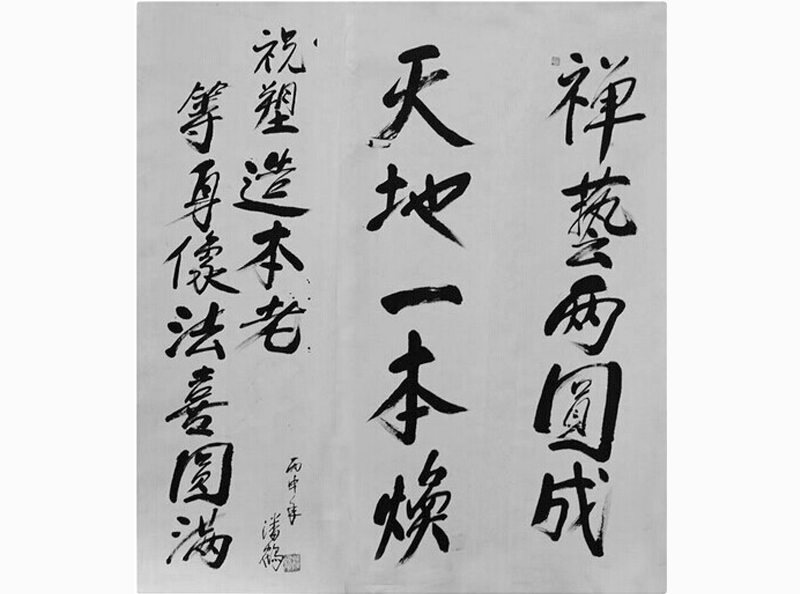 禅藝两圓成
天地一本焕
祝塑造本老
等身像法喜圓满
丙申年
潘鶴